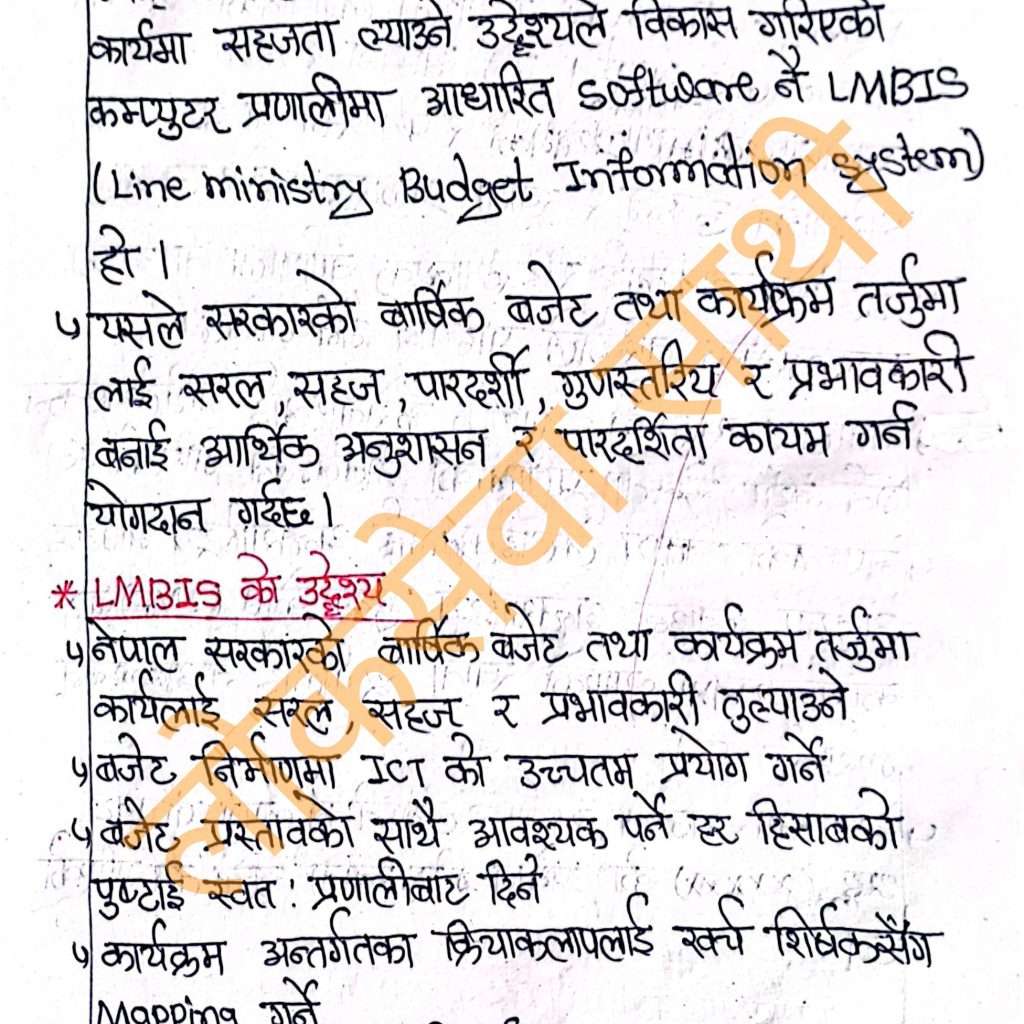 कार्यमा सहजता ल्याउने उद्देश्यले विकास गरिएको
कम्प्युटर प्रणालीमा आधारित software नै LMBIS
(Line ministry Budget Information system)
हो ।
५ यसले सरकारको बार्षिक बजेट तथा कार्यक्रम तर्जुमा
लाई सरल, सहज, पारदर्शी, गुणस्तरिय र प्रभावकारी
बनाई आर्थिक अनुशासन र पारदर्शिता कायम गर्न
योगदान गर्दछ।
* LMBIS को उद्देश्य
५ नेपाल सरकारको बार्षिक बजेट तथा कार्यक्रम तर्जुमा
कार्यलाई सरल, सहज र प्रभावकारी तुल्याउने
५ बजेट निर्माणमा ICT को उच्चतम प्रयोग गर्ने
५ बजेट प्रस्तावको साथै आवश्यक पर्ने हर हिसाबको
पुष्टाई स्वत: प्रणालीबाट दिने
५ कार्यक्रम अन्तर्गतका क्रियाकलापलाई खर्च शिर्षकसँग
Mapping गर्ने
लोकसेवा सारथी